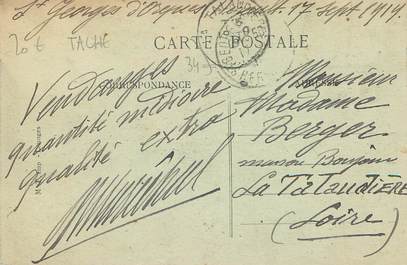 St Georges d'Orques 17 Sept. 1919
20 € TACHÉ
CARTE POSTALE
CORRESPONDANCE
ADRESSE
34
Vendanges
quantité médiocre
qualité extra
Monsieur
Madame
Berger
maison
La Talaudière
(Loire)